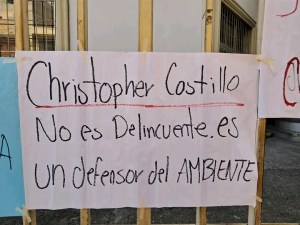 Christopher Costillo
No es Delincuente.es
un defensor del AMBIENTE